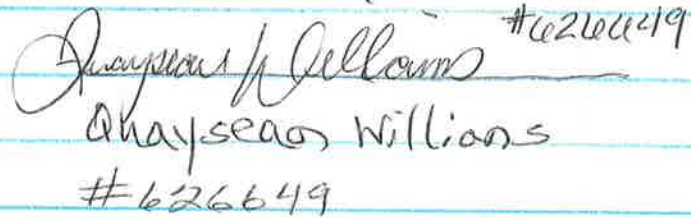 Quaysean Williams #626649
Quaysean Williams
#626649